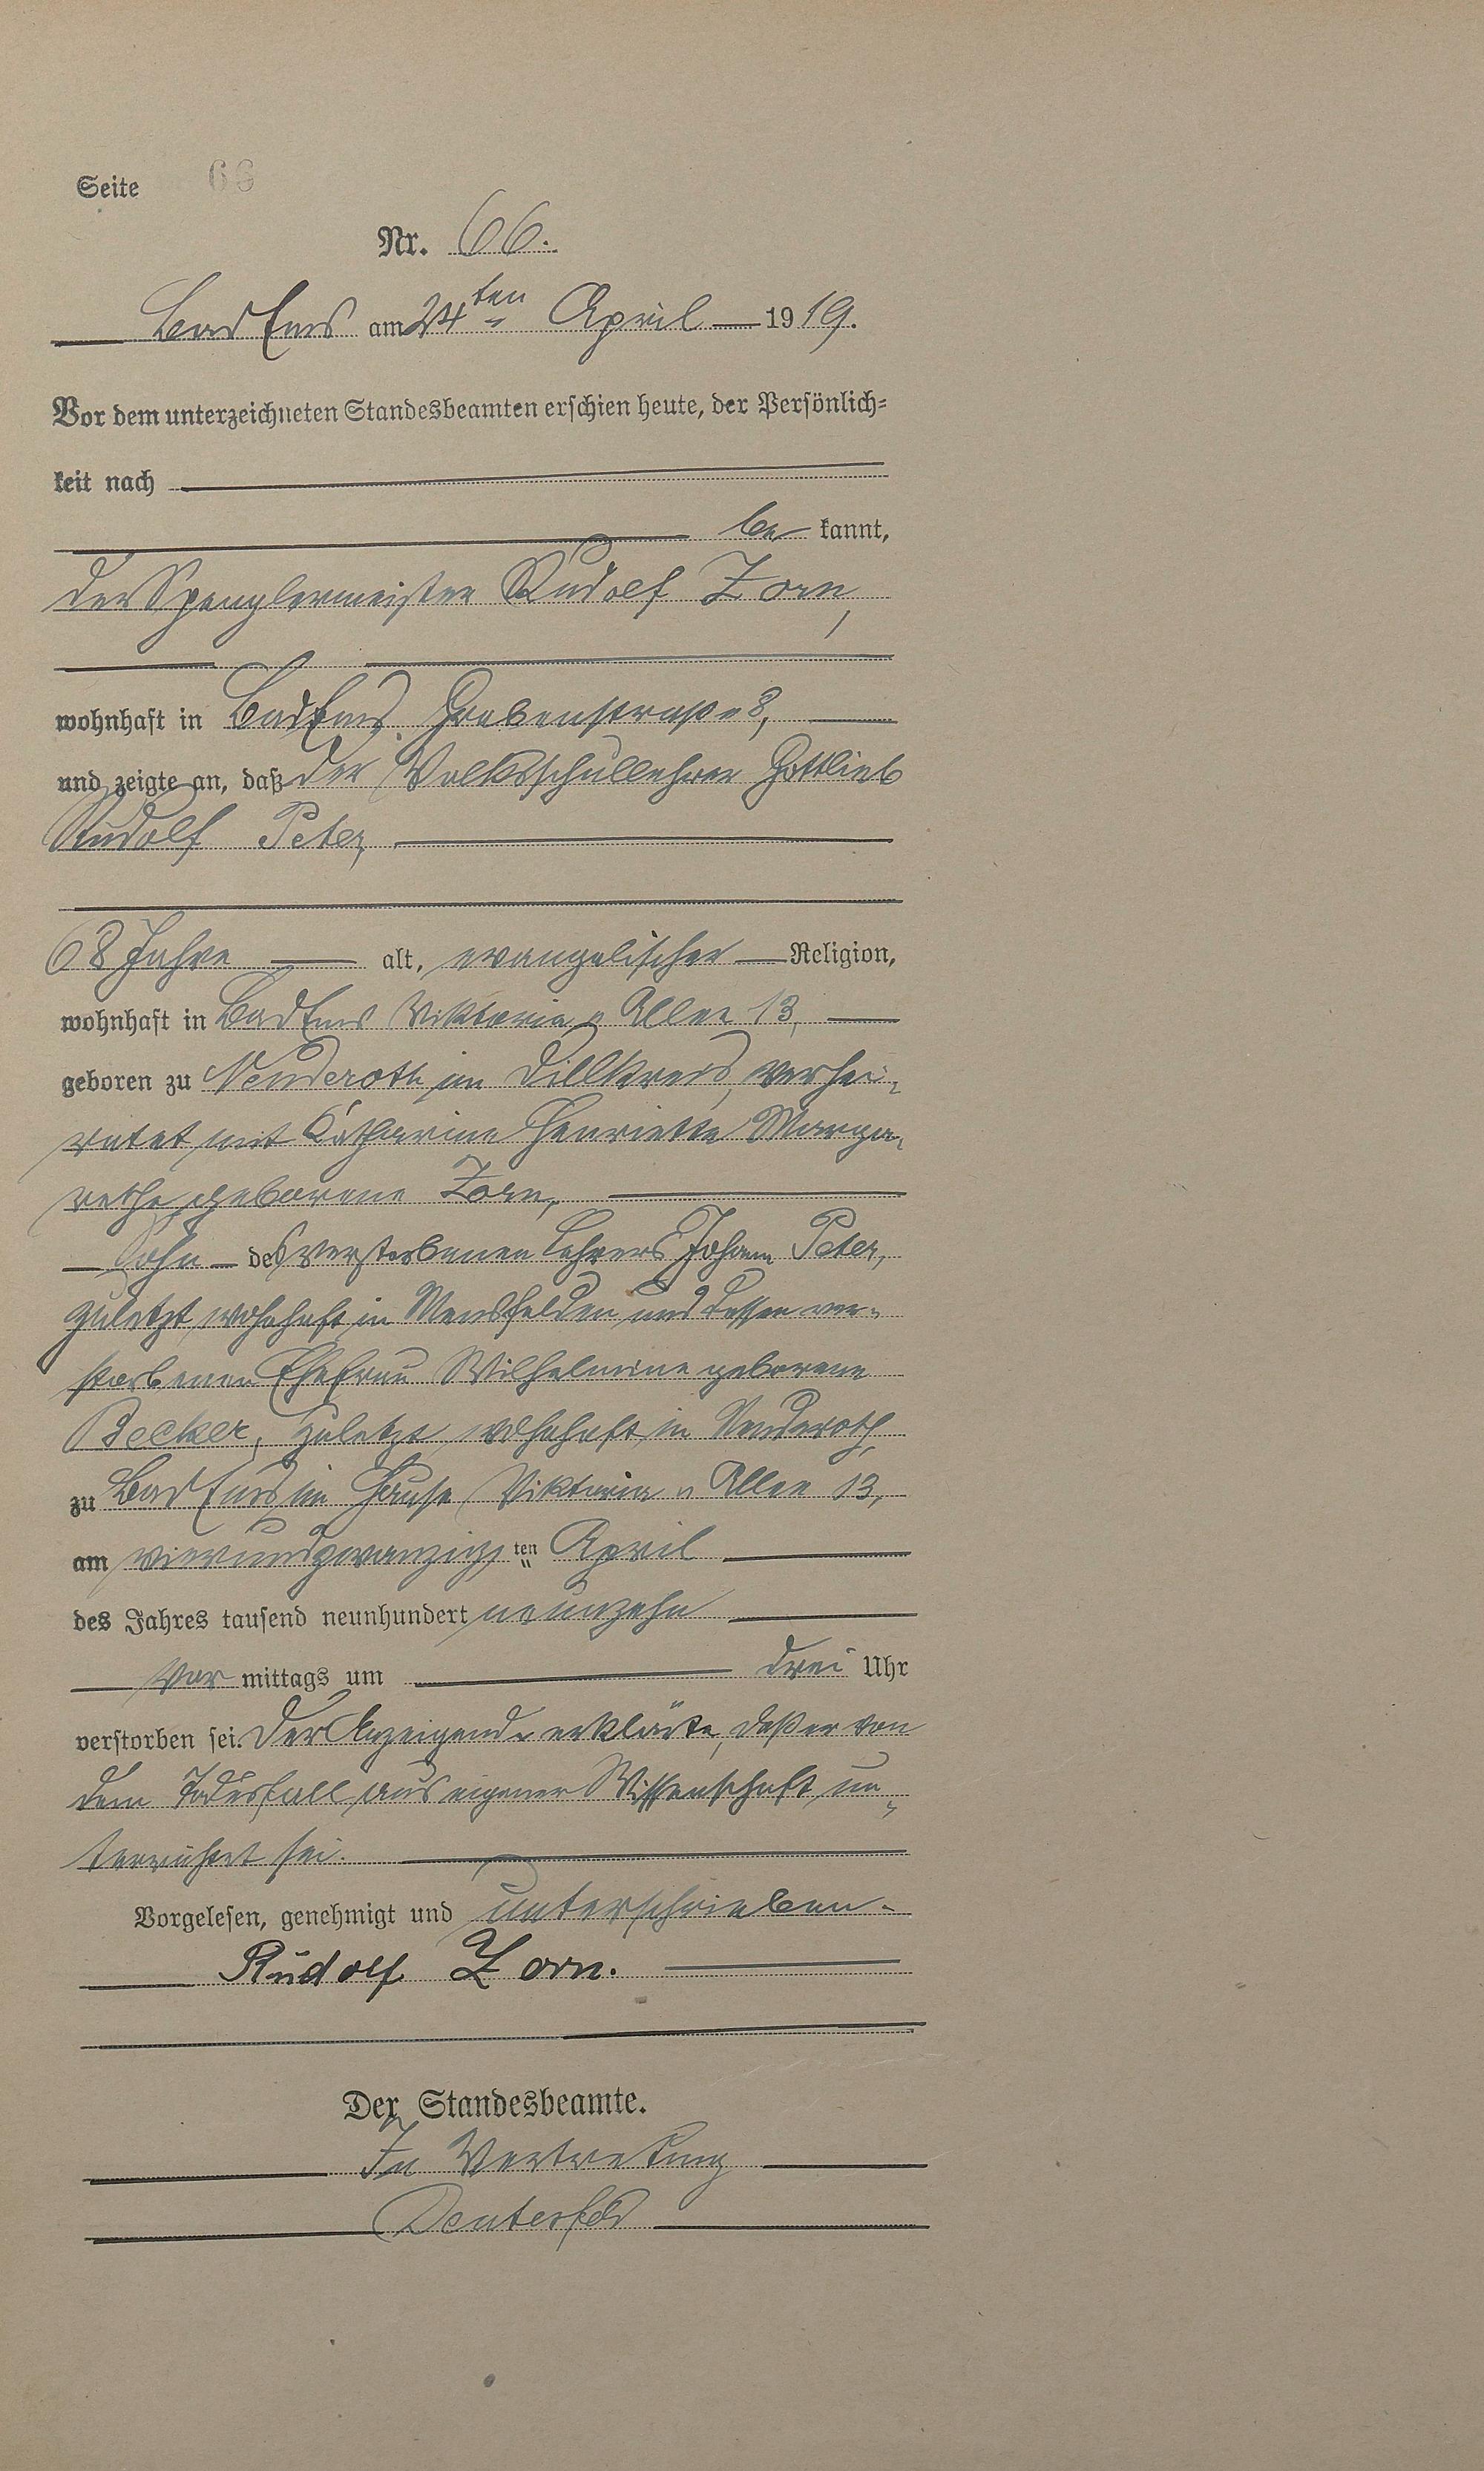 Seite 66
Nr. 66.
Bad Ems am 24ten April 1919.
Vor dem unterzeichneten Standesbeamten erschien heute, der Persönlich=
keit nach
be kannt,
der Spenglermeister Rudolf Zorn,
wohnhaft in Bad Ems, Grabenstraße 8,
und zeigte an, daß der Volksschullehrer Gottlieb
Rudolf Peter,
68 Jahre alt, evangelischer Religion,
wohnhaft in Bad Ems Viktoria-Allee 13,
geboren zu Nenderoth im Dillkreis, verhei-
ratet mit Katharine Henriette Marga-
rethe geborene Zorn,
Sohn des verstorbenen Lehrers Johann Peter,
zuletzt wohnhaft in Mensfelden und dessen ver-
storbenen Ehefrau Wilhelmine geborene
Becker, zuletzt wohnhaft in Nenderoth,
zu Bad Ems im Hause Viktoria-Allee 13,
am vierundzwanzigten April
des Jahres tausend neunhundert neunzehn
Vor mittags um drei Uhr
verstorben sei. Der Anzeigende erklärte, daß er von
dem Todesfall aus eigener Wissenschaft un-
terrichtet sei.
Vorgelesen, genehmigt und unterschrieben.
Rudolf Zorn.
Der Standesbeamte.
In Vertretung